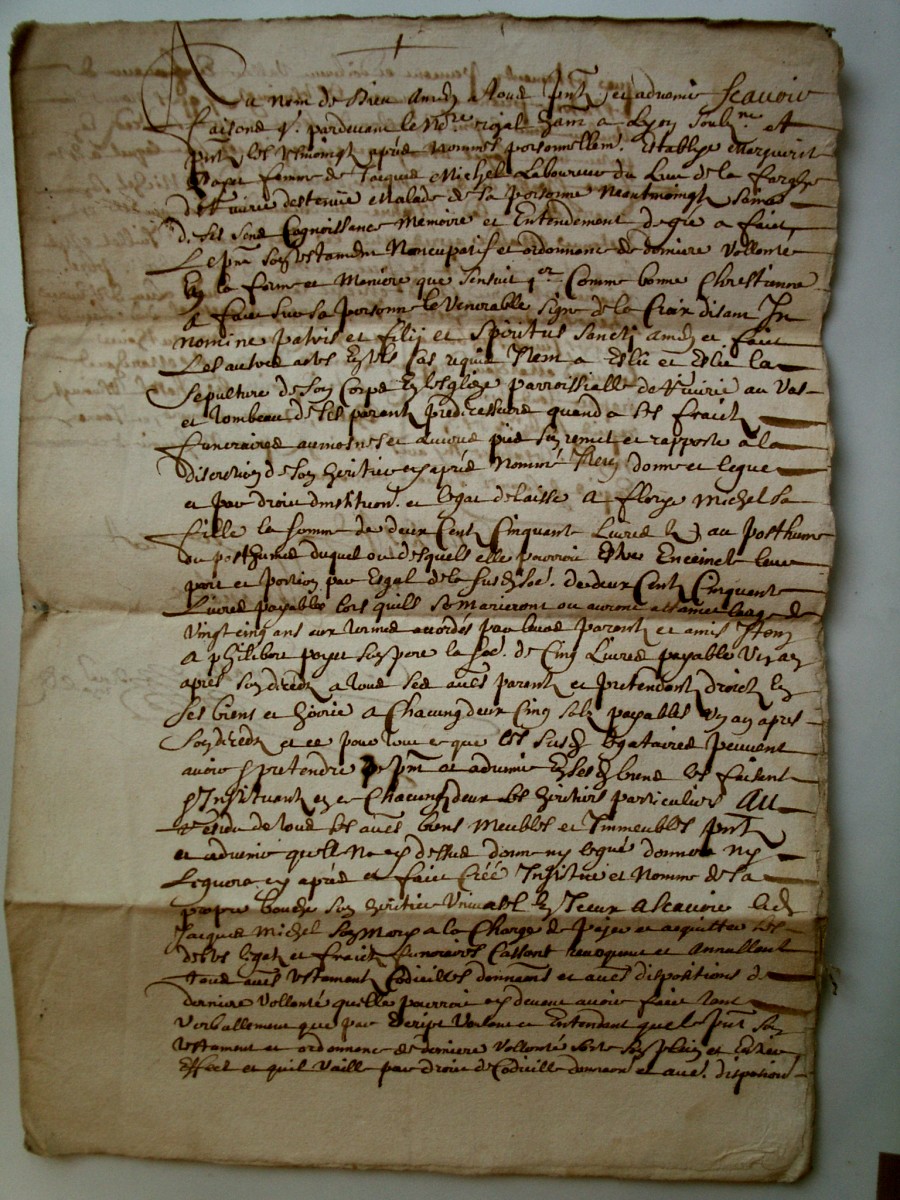 Au nom de Dieu Amen a tous pntz et advenir scavoir
faisons q. pardevant le No.re royal hant a Lyon soubz.ne et
pnt les tesmoingtz aprés nommés personnellem. establye
Payet femme de Jacques Michel Laboureur du Lieu de la
de Vivrie destenue Malade de sa personne Neantmoingt Saine
de ses sens Cognoissance Memoire et Entendement de gre a faict
Le pnt son testament Noncupatif et ordonnance de derniere Vollonté
En la forme et Maniere que sensuit p.er Comme bonne Chrestienne
A faict sur sa personne le Venerable signe de la Croix disant In
nomine patris et filij et spiritus sancti amen et faict
Les autres actes en tel cas requis Item a eslu et eslit la
sepulture de son Corps en lesglize parroissialle de Vivrie au Vas
et tombeau de ses parentz predecesseurs quand a ses fraictz
funeraires aumosnes et autres piés sen remet et rapporte a la
discretion de son heritier cy aprés nommé Item donne et legue
et par droict dinstitution et legat delaisse A florye Michel sa
fille la somme de deux Cent Cinquante Livres Et au posthume
ou posthumes duquel ou desquels elle pourroit Estre Enceincte leur
part et portion par Esgal de la susd. so.e de deux Cent Cinquante
Livres payables lors quilz se marieront ou auront attainct leage de
vingt cinq ans aux termes accordés par leurs parentz et amis Item
A philibert payet son pere la so.e de Cinq Livres payable Un an
aprés son deces a tous ses autres parentz et pretendantz droict En
ses biens et hoirie a Chacung deux Cinq solz payables Un an aprés
Son deces et ce pour tout ce que les susd. legataires peuvent
avoir et pretendre pnt et advenir En sesd. biens les faisant
et Instituant en ce Chacung deux ses heritiers particuliers Au
residu de tous ses autres biens Meubles et Immeubles pntz
et advenir quelle Na cy dessus donné ny legué donnera ny
Leguera cy aprés et faict Créé Institue et Nomme de sa
propre bouche son heritier Universel En seul a scavoir led.
Jacques Michel son Mary a la Charge de payer et acquitter ses
debtes legatz et fraictz funeraires Cassant revoquant et Annullant
tous autres testament Codicilles donnaons et autres dispositions de
derniere Vollonté quelle pourroit cy devant avoir faict tant
Verballement que par Escript Voulant et Entendant que le pnt son
testament et ordonnance de derniere Vollonté sorte son plein et Entier
Effect et quil Vaille par droict de Codicille donnaon et autre disposion